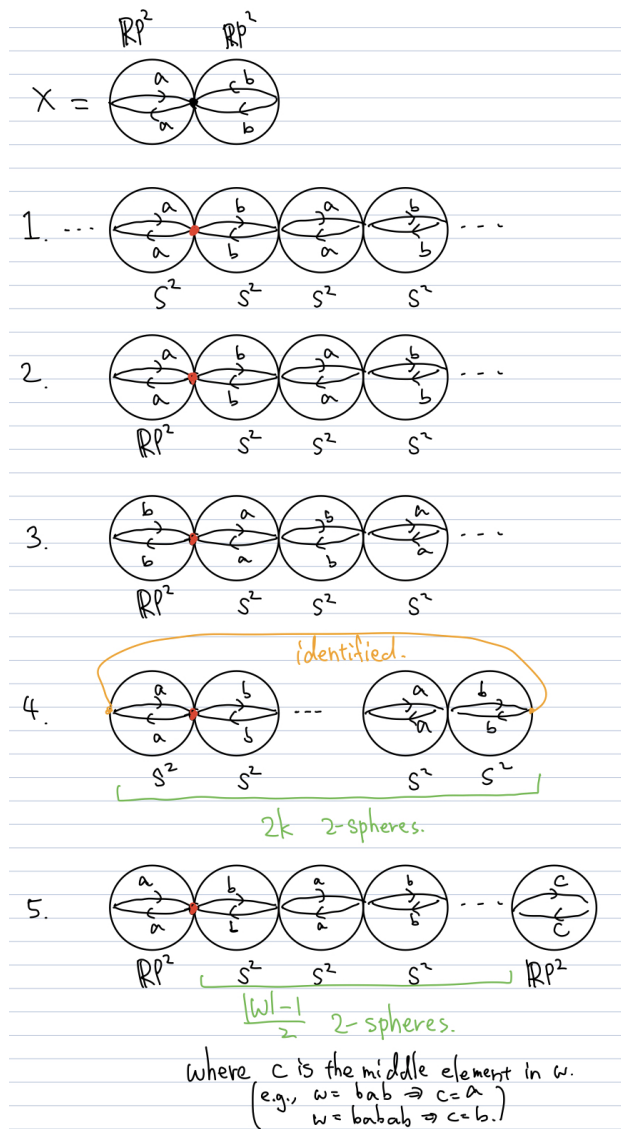 RP² RP²
X = a a b b
1. ... a a b b a a b b ...
S² S² S² S²
2. a a b b a a b b ...
RP² S² S² S²
3. b b a a b b a a ...
RP² S² S² S²
identified.
4. a a b b ... a a b b
S² S² S² S²
2k 2-spheres.
5. a a b b a a b b ... c c
RP² S² S² S² RP²
|w|-1
2 2-spheres.
where c is the middle element in w.
(e.g., w = bab ⇒ c=a
w = babab ⇒ c=b.)